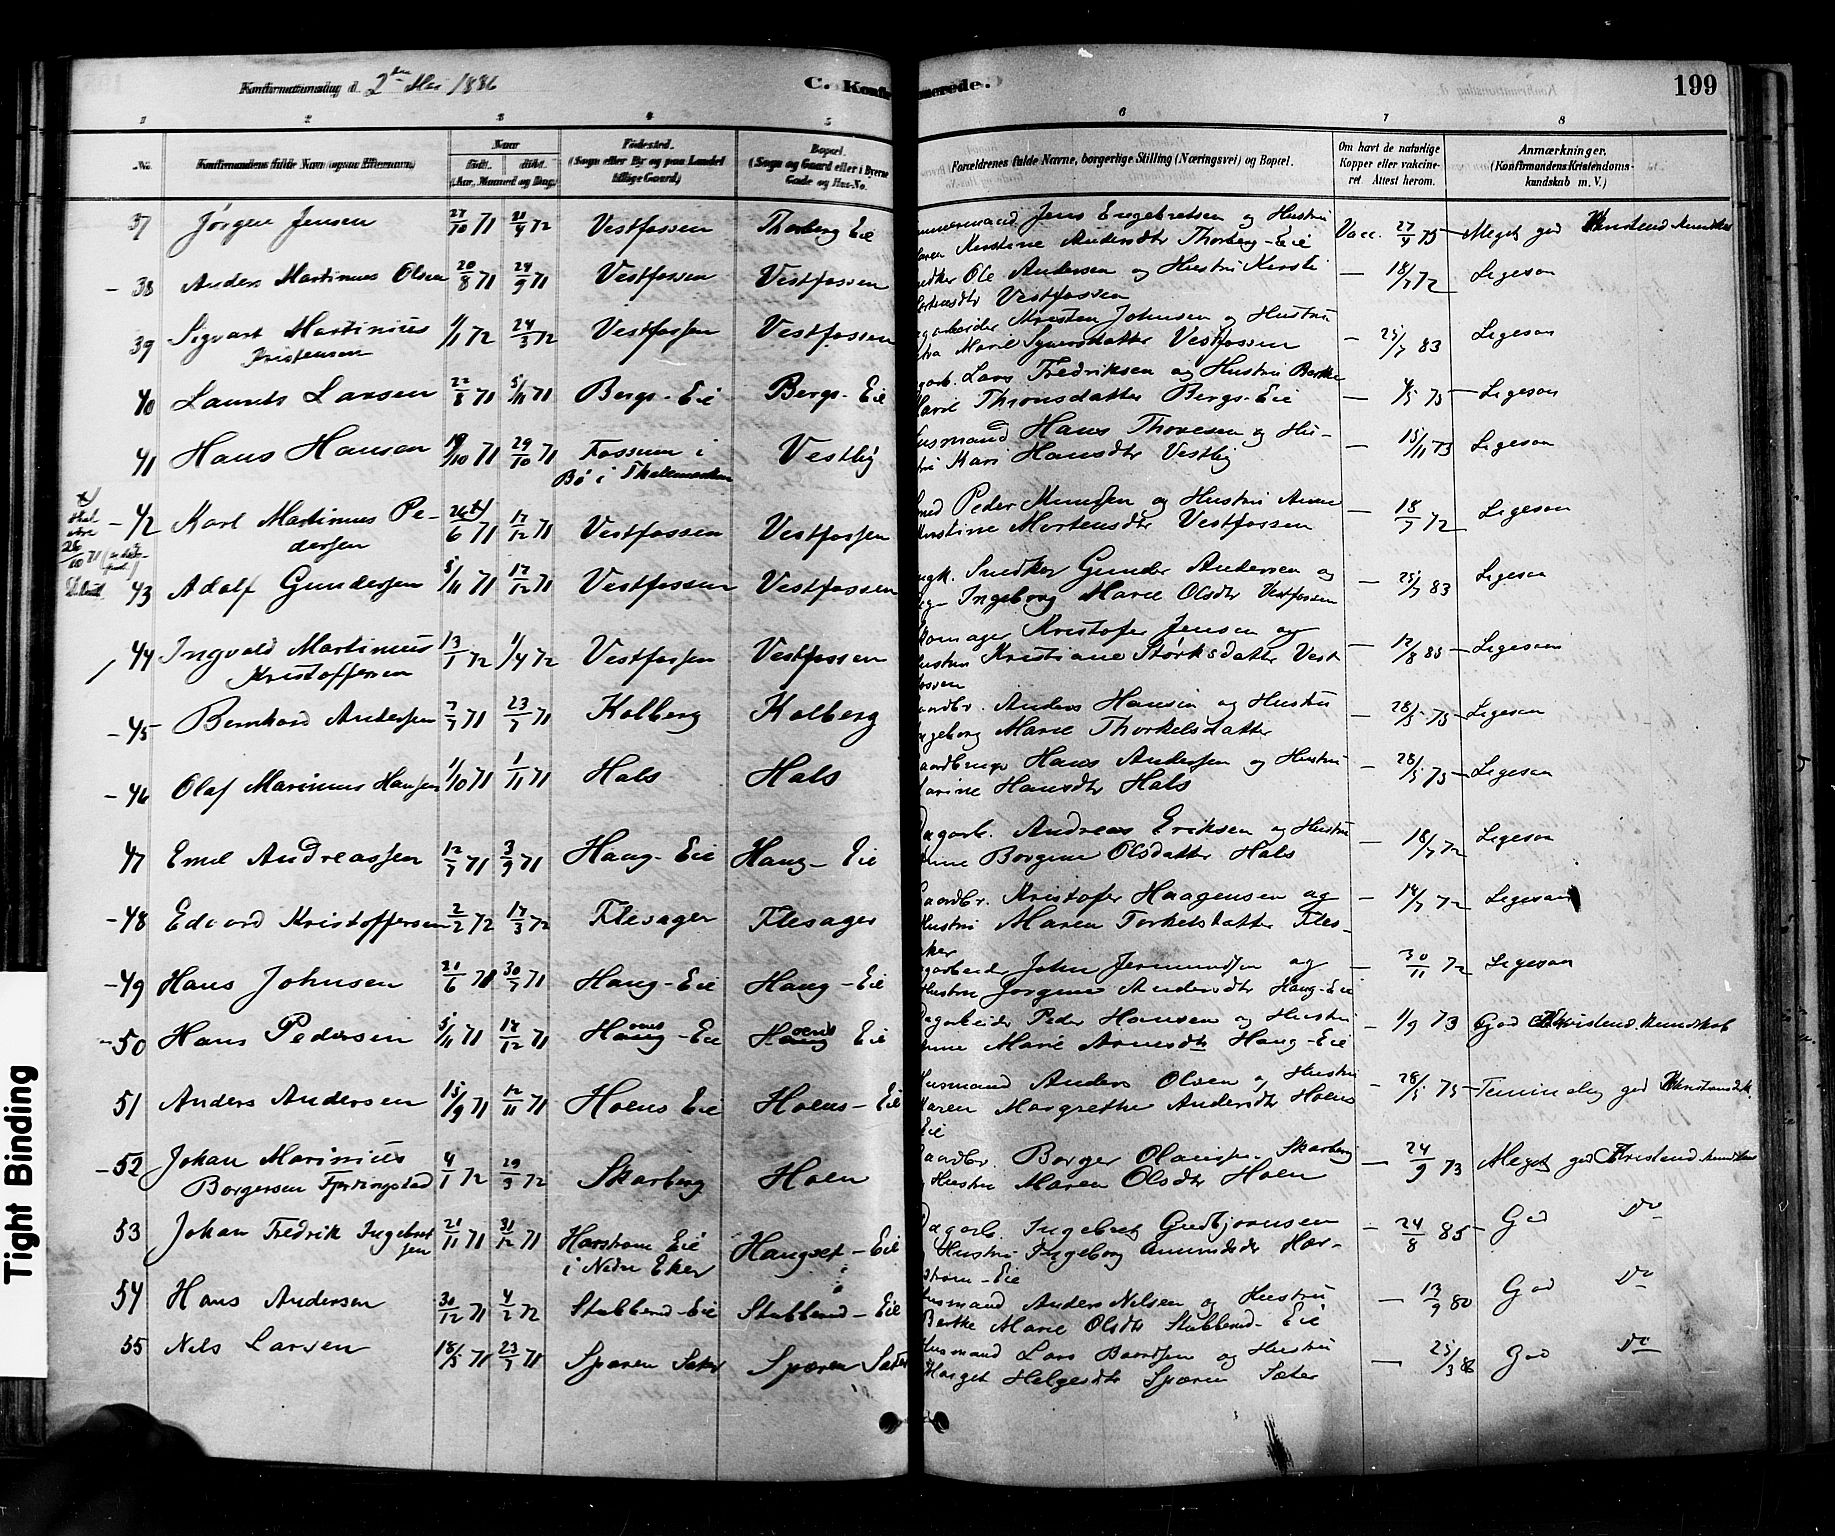 Konfirmationsdag d. 2den Mai 1886 C. Konfirmerede. 199
1 2 3 4 5 6 7 8
No. Konfirmandens fulde Navn (ogsaa Efternavn) Naar Født. døbt. (Aar, Maaned og Dag) Fødested. (Sogn eller By og paa Landet tillige Gaard) Bopæl. (Sogn og Gaard eller i Byerne Gade og Hus-No. Forældrenes fulde Navne, borgerlige Stilling (Næringsvei) og Bopæl. Om havt de naturlige Kopper eller vakcineret Attest herom. Anmærkninger. (Konfirmandens Kristendomskundskab m. V.)
37 Jørgen Jensen 27/10 71 21/4 72 Vestfossen Thorberg Eie Jens Engebretsen og Hustru Vacc. 27/4 75 Meget god Kristend. kundskab
Kirstine Andersdtr Thorberg-Eie
- 38 Anders Martinus Olsen 20/8 71 24/9 71 Vestfossen Vestfossen Ole Andersen og Hustru Kirsti — 18/7 72 Ligesaa
Vestfossen
39 Sigvart Martinius 1/1 72 24/3 72 Vestfossen Vestfossen Kristen Johnsen og Hustru — 25/7 83 Ligesaa
Kristensen Marie Vestfossen
40 Laurits Larsen 22/8 71 5/11 71 Bergs-Eie Bergs-Eie Lars Fredriksen og Hustru Berthe — 4/5 75 Ligesaa
Marie Thronsdatter Bergs-Eie
41 Hans Hansen 10/10 71 29/10 71 Fossum i Vestby Husmand Hans Thovesen og Hu- — 15/11 73 Ligesaa
Bø i Thelemarken stru Kari Hansdtr Vestby
- 42 Karl Martinus Pe- 26/6 71 17/12 71 Vestfossen Vestfossen Peder og Hustru Anne — 18/7 72 Ligesaa
dersen Kirstine Mortensdtr Vestfossen
43 Adolf Gundersen 5/11 71 17/12 71 Vestfossen Vestfossen Snedker Gunder Andersen og — 25/7 83 Ligesaa
Ingeborg Marie Olsdtr Vestfossen
44 Ingvald Martinius 13/1 72 1/4 72 Vestfossen Vestfossen Skomager Kristofer Jensen og — 12/8 85 Ligesaa
Kristoffersen Hustru Kristiane Størksdatter Vest
fossen
- 45 Bernhard Andersen 7/7 71 23/7 71 Kolberg Kolberg Gaardbr. Anders Hansen og Hustru — 28/5 75 Ligesaa
Ingeborg Marie Thorkelsdatter
- 46 Olaf Marinius Hansen 1/10 71 1/11 71 Hals Hals Gaardbruger Hans Andersen og Hustru — 28/5 75 Ligesaa
Marine Hansdtr Hals
47 Emil Andreassen 12/7 71 3/9 71 Haug-Eie Haug-Eie Dagarb. Andreas Eriksen og Hustru — 18/7 72 Ligesaa
Anne Borgine Olsdatter Hals
- 48 Edvard Kristoffersen 2/2 72 17/3 72 Flesager Flesager Gaardbr. Kristofer Haagensen og — 18/7 72 Ligesaa
Hustru Maren Torkelsdatter Fles-
aker
- 49 Hans Johnsen 21/6 71 30/7 71 Haug-Eie Haug-Eie Dagarbeider John og — 30/11 72 Ligesaa
Hustru Jørgine Andersdtr Haug-Eie
- 50 Hans Pedersen 5/11 71 17/12 71 Haug-Eie Haug Eie Dagarbeider Peder Hansen og Hustru — 1/9 73 God Kristend. kundskab
Anne Marie Arnesdtr Haug-Eie
51 Anders Andersen 15/9 71 12/11 71 Hoens Eie Hoens-Eie Husmand Anders Olsen og Hustru — 28/5 75 Temmelig god Kristendk.
Maren Margrethe Andersdtr Hoens
Eie
- 52 Johan Marinius 4/1 72 29/3 72 Skarberg Hoen Gaardbr. Borger Olausen Skarberg — 24/9 73 Meget god Kristend. kundskab
Borgersen og Hustru Maren Olsdtr Hoen
53 Johan Fredrik Ingebret 21/11 71 31/12 71 Horstrom Eie Haugset-Eie Dagarb. Ingebret Gudbjørnsen — 24/8 85 God Do
sen i Nedre Eker og Hustru Ingeborg Amundsdtr Hor-
strøm-Eie
54 Hans Andersen 30/12 71 4/2 72 Stubberud-Eie Stubberud-Eie Husmand Anders Nilsen og Hustru — 13/9 80 God Do
Berthe Marie Olsdtr Stubberud-Eie
55 Nils Larsen 18/5 71 23/7 71 Spæren Sæter Spæren Sæter Husmand Lars Baardsen og Hustru — 25/3 86 God Do
Marget Helgesdtr Spæren Sæter
Tight Binding